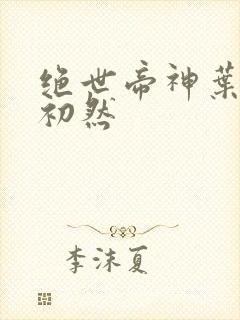 绝世帝神叶
初然
李沫夏